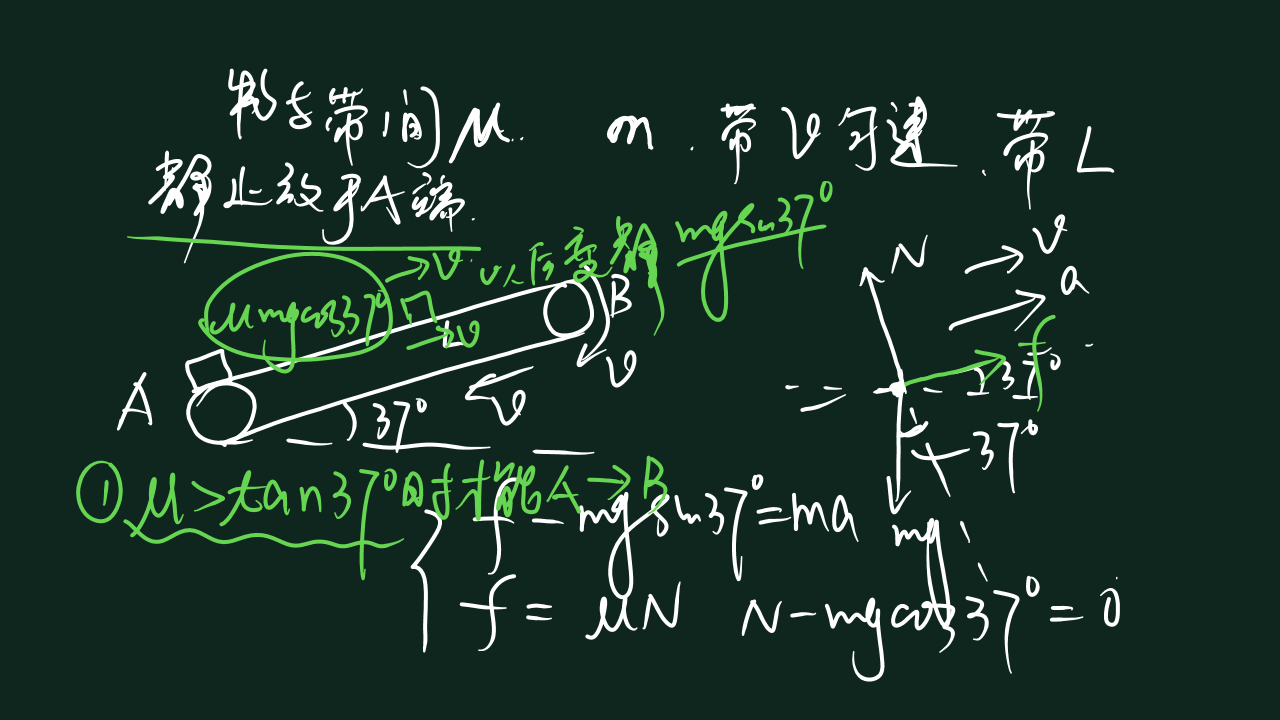 物与带间μ. m. 带v匀速、带L
静止放于A端.
mgsin37°
v v以后变静
μmgcos37° v
B
v
A 37° v
N v
a
f
37°
37°
mg
①μ>tan37°时才能A→B
f-mgsin37°=ma
f=μN N-mgcos37°=0